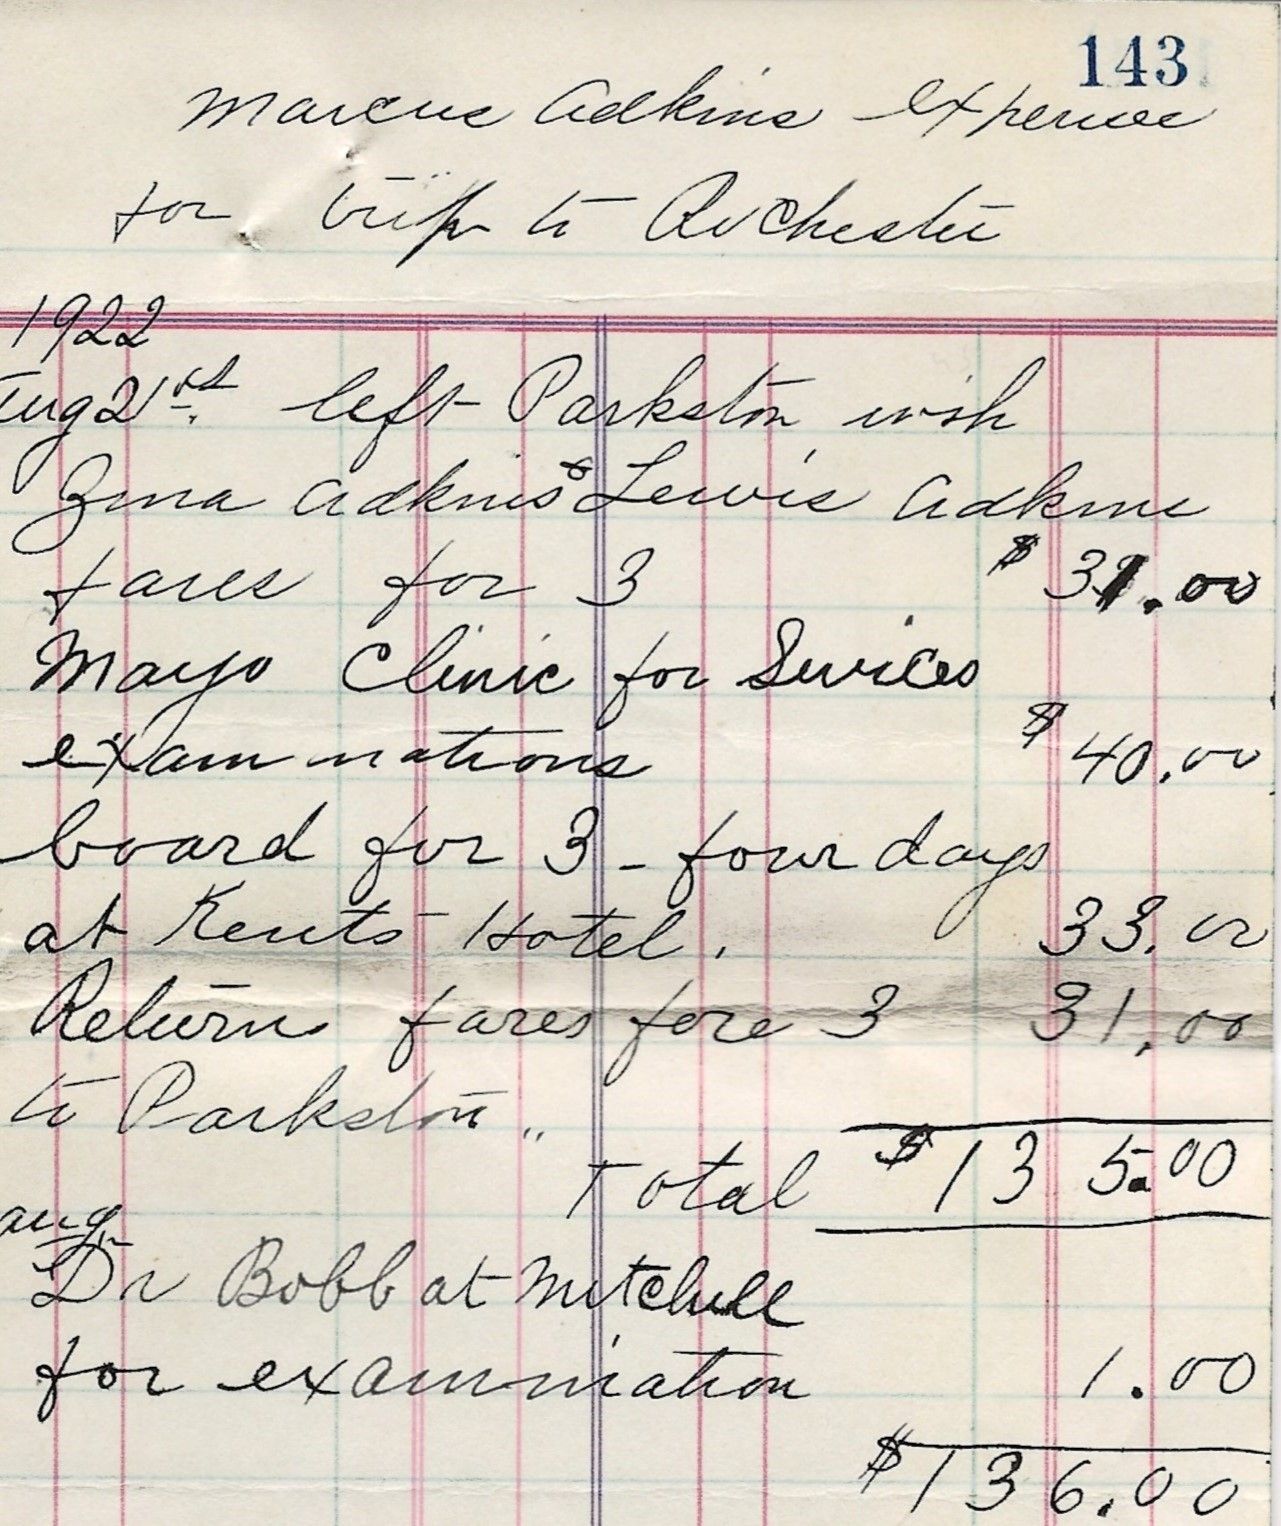 143
Marcus Adkins expense
for trip to Rochester
1922
Aug 21st left Parkston with
Zina Adkins & Lewis Adkins
fares for 3 $31.00
Mayo Clinic for Services
examinations $40.00
board for 3 - four days
at Kents Hotel. 33.00
Return fares fore 3 31.00
to Parkston "
Total $135.00
aug
Dr Bobb at Mitchell
for examination 1.00
$136.00